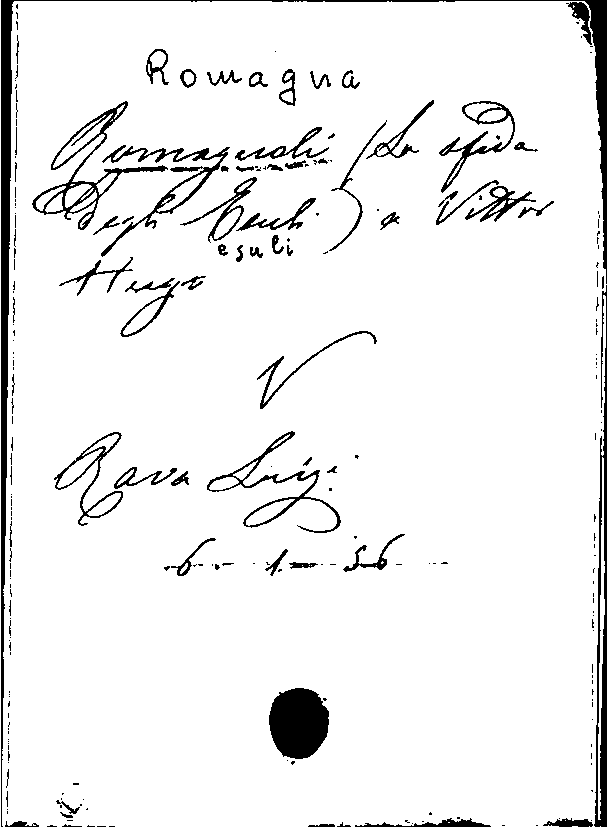 Romagna
Romagnoli (La sfida
degli Esuli) a Vittor
esuli
Hugo
V
Rava Luigi
6-1-56